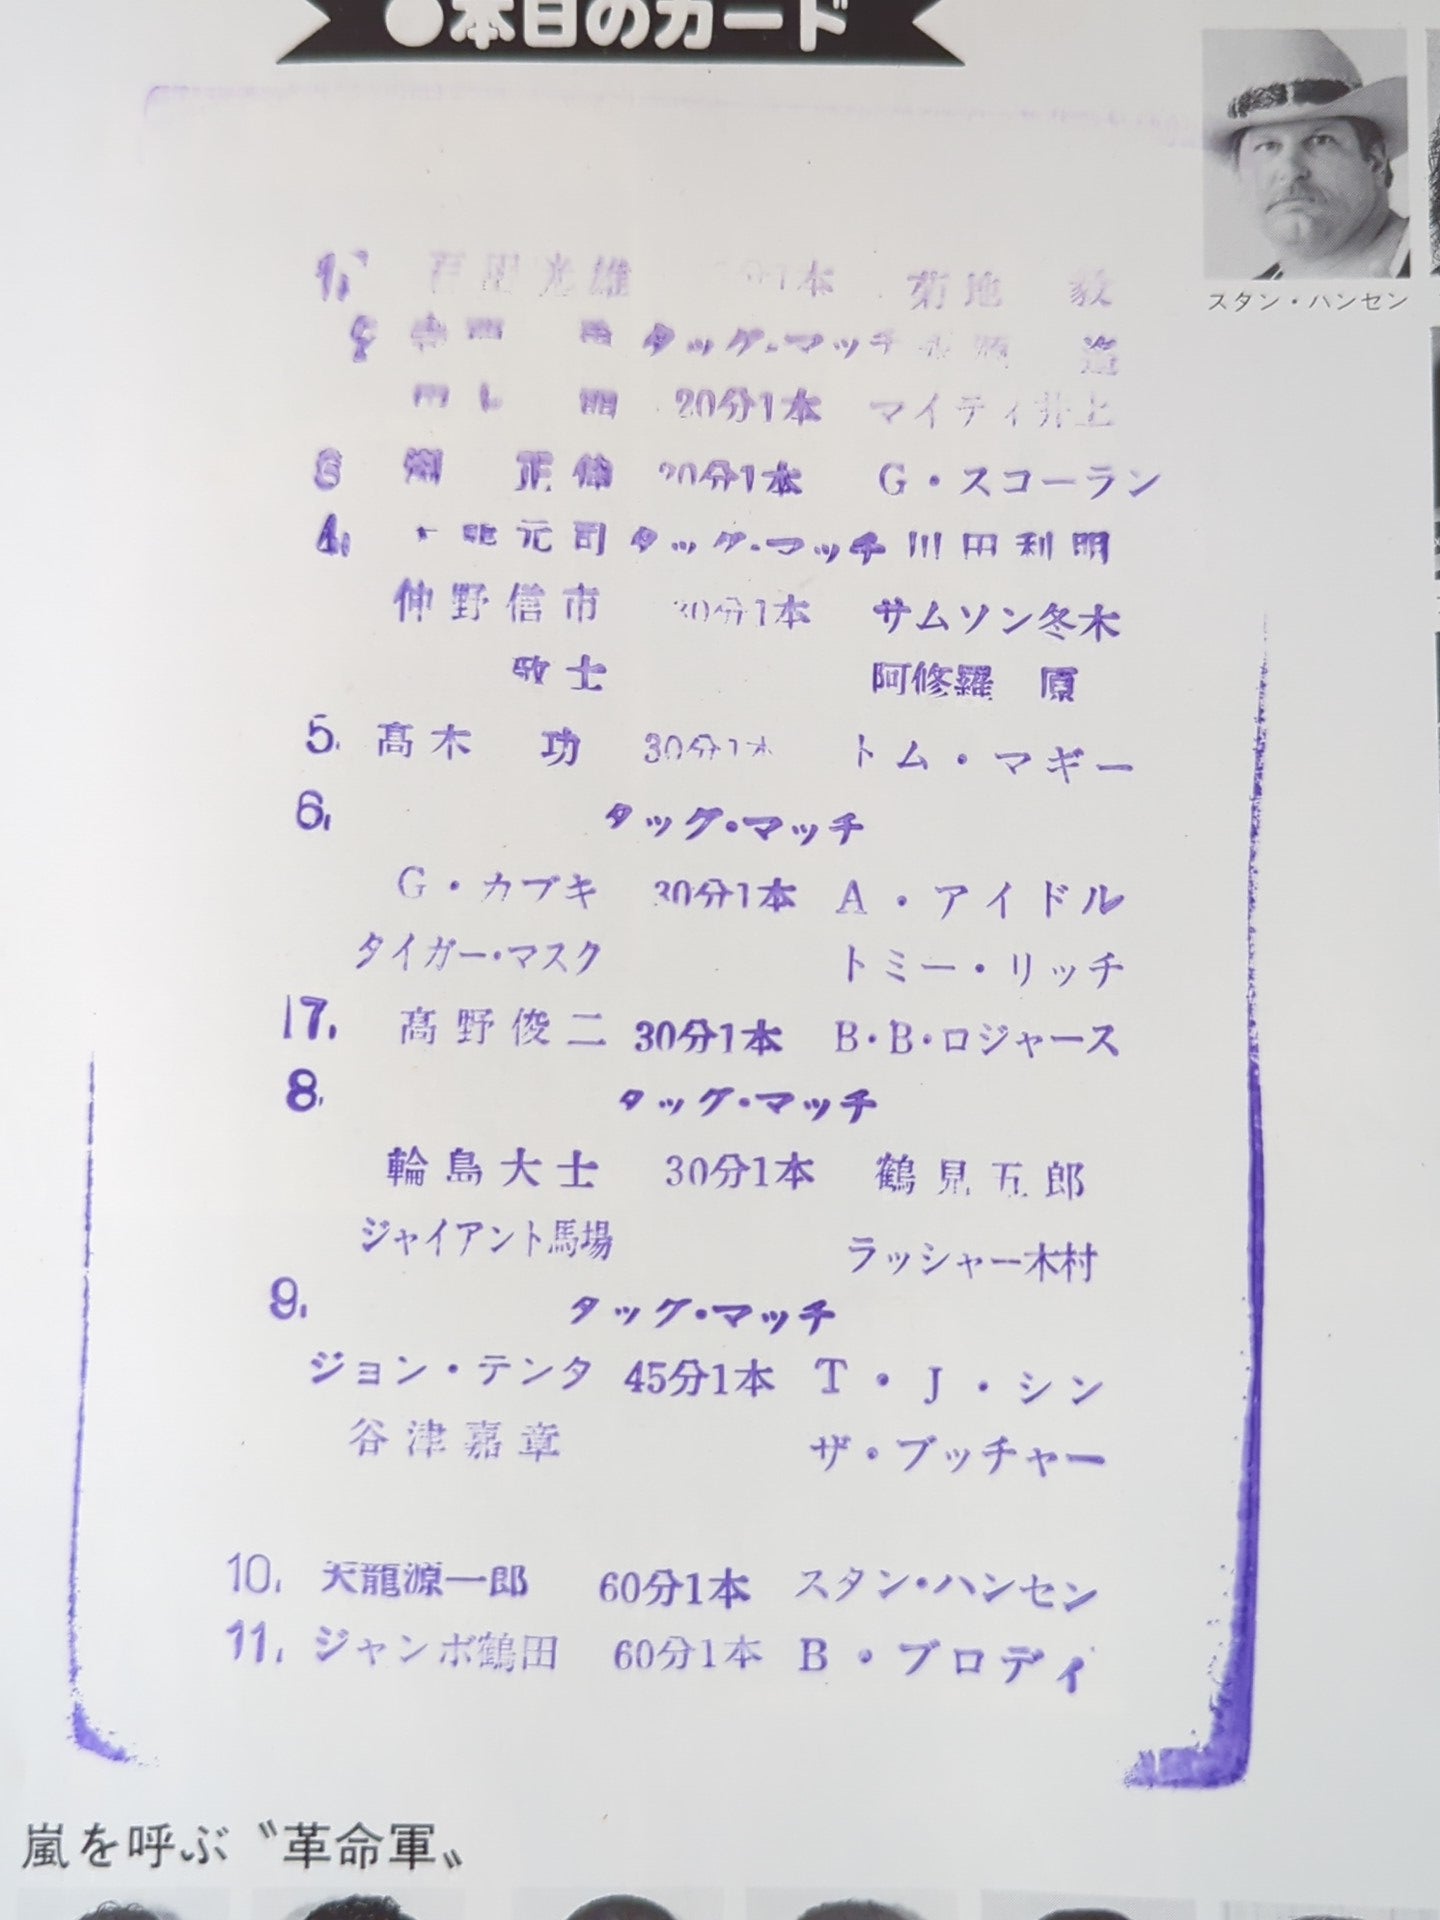 ●本日のカード
スタン・ハンセン
1. 百田光雄 分1本 菊地 毅
タッグ・マッチ
20分1本 マイティ井上
3 正伸 20分1本 G・スコーラン
4. 元司 タッグ・マッチ 川田利明
仲野信市 30分1本 サムソン冬木
敬士 阿修羅 原
5. 高木 功 30分1本 トム・マギー
6. タッグ・マッチ
G・カブキ 30分1本 A・アイドル
タイガー・マスク トミー・リッチ
7. 高野俊二 30分1本 B・B・ロジャース
8. タッグ・マッチ
輪島大士 30分1本 鶴見五郎
ジャイアント馬場 ラッシャー木村
9. タッグ・マッチ
ジョン・テンタ 45分1本 T・J・シン
谷津嘉章 ザ・ブッチャー
10. 天龍源一郎 60分1本 スタン・ハンセン
11. ジャンボ鶴田 60分1本 B・ブロディ
嵐を呼ぶ〝革命軍〟